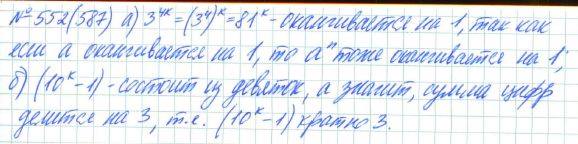 №552(587) а) 3⁴ᵏ=(3⁴)ᵏ=81ᵏ - оканчивается на 1, так как
если a оканчивается на 1, то aⁿ тоже оканчивается на 1;
б) (10ᵏ-1) - состоит из девяток, а значит, сумма цифр
делится на 3, т.е. (10ᵏ-1) кратно 3.